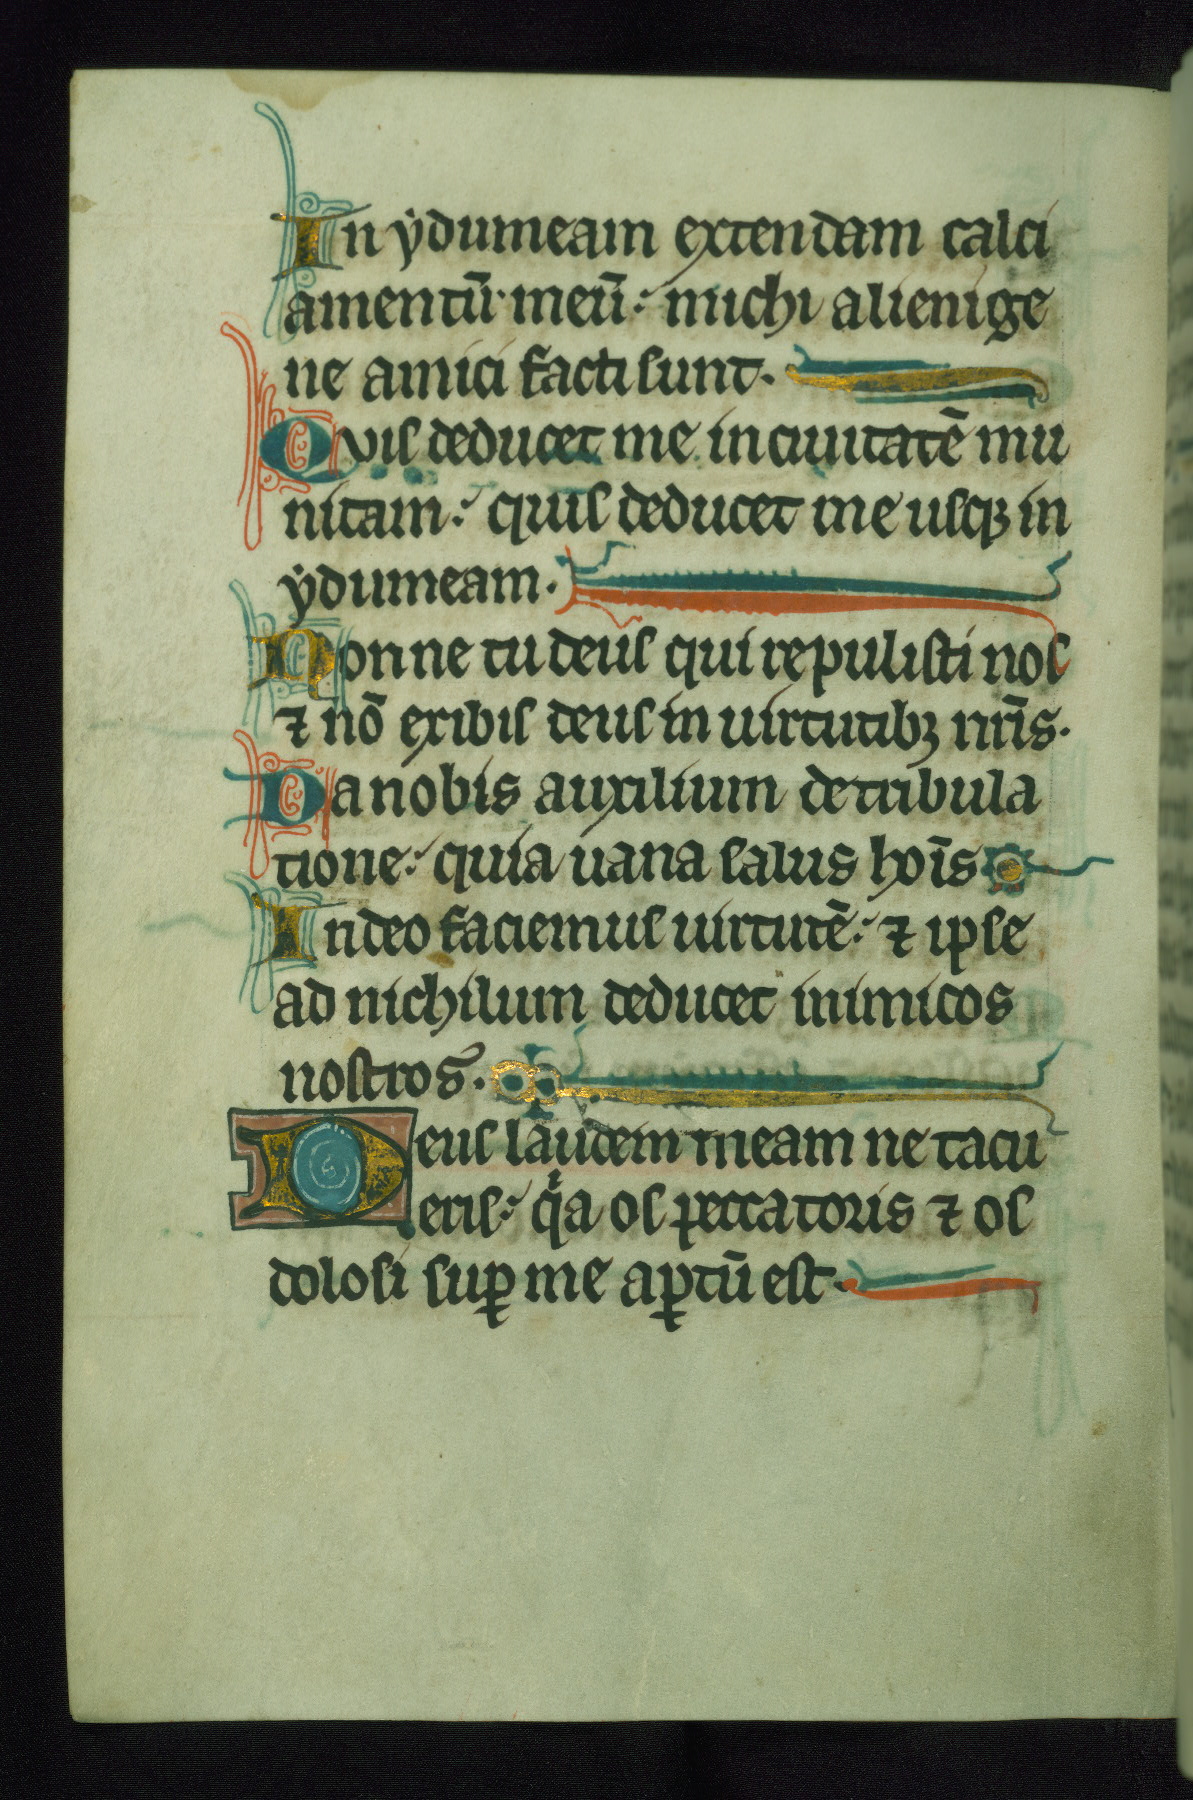 In ẏdumeam extendam calci
amentū meū: michi alienige
ne amici facti sunt.
Quis deducet me in ciuitatē mu
nitam: quis deducet me usqꝫ in
ẏdumeam.
Nonne tu deus qui repulisti nos
⁊ nō exibis deus in uirtutibꝫ nr̄is.
Da nobis auxilium de tribula
tione: quia uana salus hoīs
In deo faciemus uirtutē: ⁊ ipse
ad nichilum deducet inimicos
nostros.
Deus laudem meam ne tacu
eris: qͥa os peccatoris ⁊ os
dolosi suꝑ me aꝑtū est.